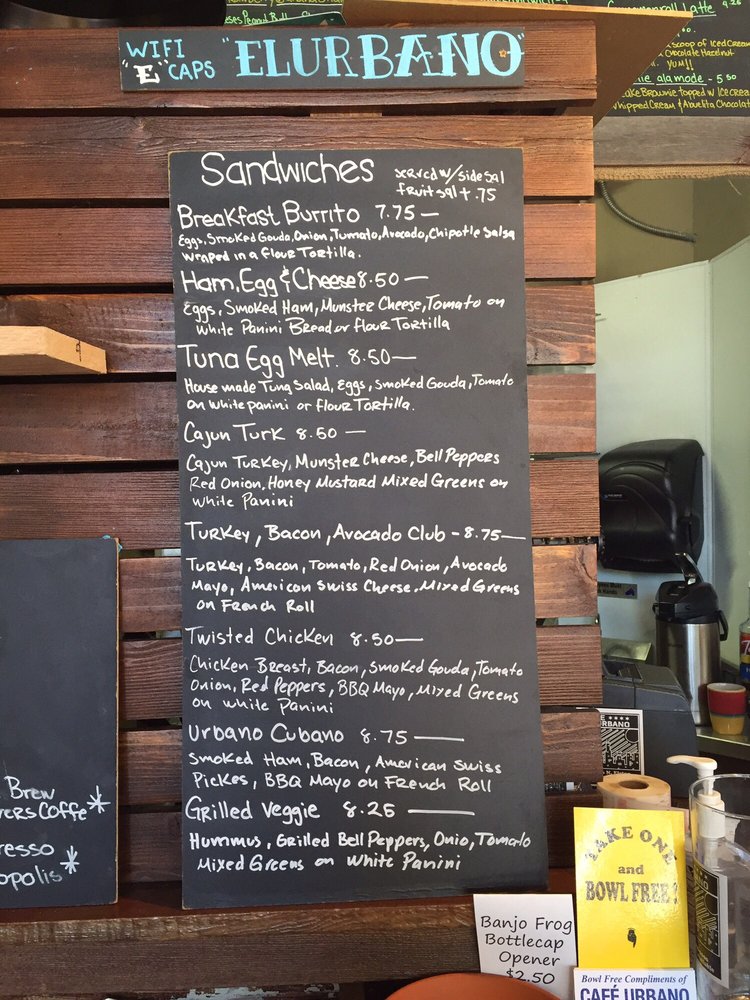 WIFI "E" CAPS "ELURBANO"
Sandwiches
served w/side sal
fruit sal + .75
Breakfast Burrito 7.75—
Eggs, Smoked Gouda, Onion, Tumato, Avocado, Chipotle Salsa
wraped in a flour Tortilla.
Ham, Egg & Cheese 8.50—
Eggs, Smoked Ham, Munster Cheese, Tomato on
White Panini Bread or flour Tortilla
Tuna Egg Melt. 8.50—
House made Tuna Salad, Eggs, Smoked Gouda, Tomato
on white panini or flour Tortilla.
Cajun Turk 8.50—
Cajun Turkey, Munster Cheese, Bell Peppers
Red Onion, Honey Mustard Mixed Greens on
white Panini
Turkey, Bacon, Avocado Club - 8.75—
Turkey, Bacon, Tomato, Red Onion, Avocado
Mayo, American Swiss Cheese, Mixed Greens
on French Roll
Twisted Chicken 8.50—
Chicken Breast, Bacon, Smoked Gouda, Tomato
Onion, Red Peppers, BBQ Mayo, Mixed Greens
on white Panini
Urbano Cubano 8.75—
Smoked Ham, Bacon, American Swiss
Pickes, BBQ Mayo on French Roll
Grilled Veggie 8.25—
Hummus, Grilled Bell Peppers, Onio, Tomato
Mixed Greens on White Panini
Latte
Scoop of Iced Cream
Chocolate Hazelnut
YUM!!
ala mode - 5.50
Brownie topped w Ice cream
whipped Cream & Abuelita Chocolat
Brew
Coffe*
resso
opolis*
TAKE ONE
and
BOWL FREE!
Banjo Frog
Bottlecap
Opener
$2.50
Bowl Free Compliments of
CAFÉ URBANO